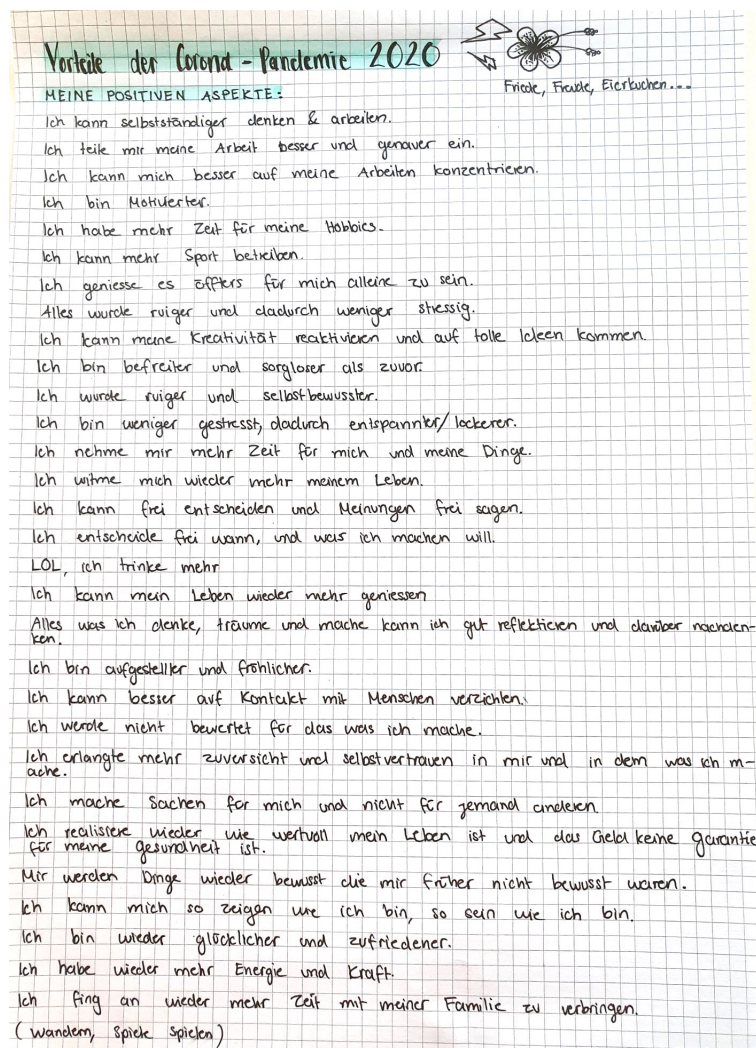 Vorteile der Corona-Pandemie 2020
Friede, Freude, Eierkuchen...
MEINE POSITIVEN ASPEKTE:
Ich kann selbstständiger denken & arbeiten.
Ich teile mir meine Arbeit besser und genauer ein.
Ich kann mich besser auf meine Arbeiten konzentrieren.
Ich bin Motivierter.
Ich habe mehr Zeit für meine Hobbies.
Ich kann mehr Sport betreiben.
Ich geniesse es öffters für mich alleine zu sein.
Alles wurde ruiger und dadurch weniger stressig.
Ich kann meine Kreativität reaktivieren und auf tolle Ideen kommen.
Ich bin befreiter und sorgloser als zuvor.
Ich wurde ruiger und selbstbewusster.
Ich bin weniger gestresst, dadurch entspannter/lockerer.
Ich nehme mir mehr Zeit für mich und meine Dinge.
Ich witme mich wieder mehr meinem Leben.
Ich kann frei entscheiden und Meinungen frei sagen.
Ich entscheide frei wann, und was ich machen will.
LOL, ich trinke mehr
Ich kann mein Leben wieder mehr geniessen
Alles was ich denke, träume und mache kann ich gut reflektieren und darüber nachden-
ken.
Ich bin aufgesteller und fröhlicher.
Ich kann besser auf Kontakt mit Menschen verzichten.
Ich werde nicht bewertet für das was ich mache.
Ich erlangte mehr zuversicht und selbstvertrauen in mir und in dem was ich m-
ache.
Ich mache Sachen for mich und nicht für jemand anderen.
Ich realisiere wieder wie wertvoll mein Leben ist und das Geld keine garantie
für meine gesundheit ist.
Mir werden Dinge wieder bewusst die mir früher nicht bewusst waren.
Ich kann mich so zeigen wie ich bin, so sein wie ich bin.
Ich bin wieder glücklicher und zufriedener.
Ich habe wieder mehr Energie und Kraft.
Ich fing an wieder mehr Zeit mit meiner Familie zu verbringen.
(Wandern, Spiele spielen)